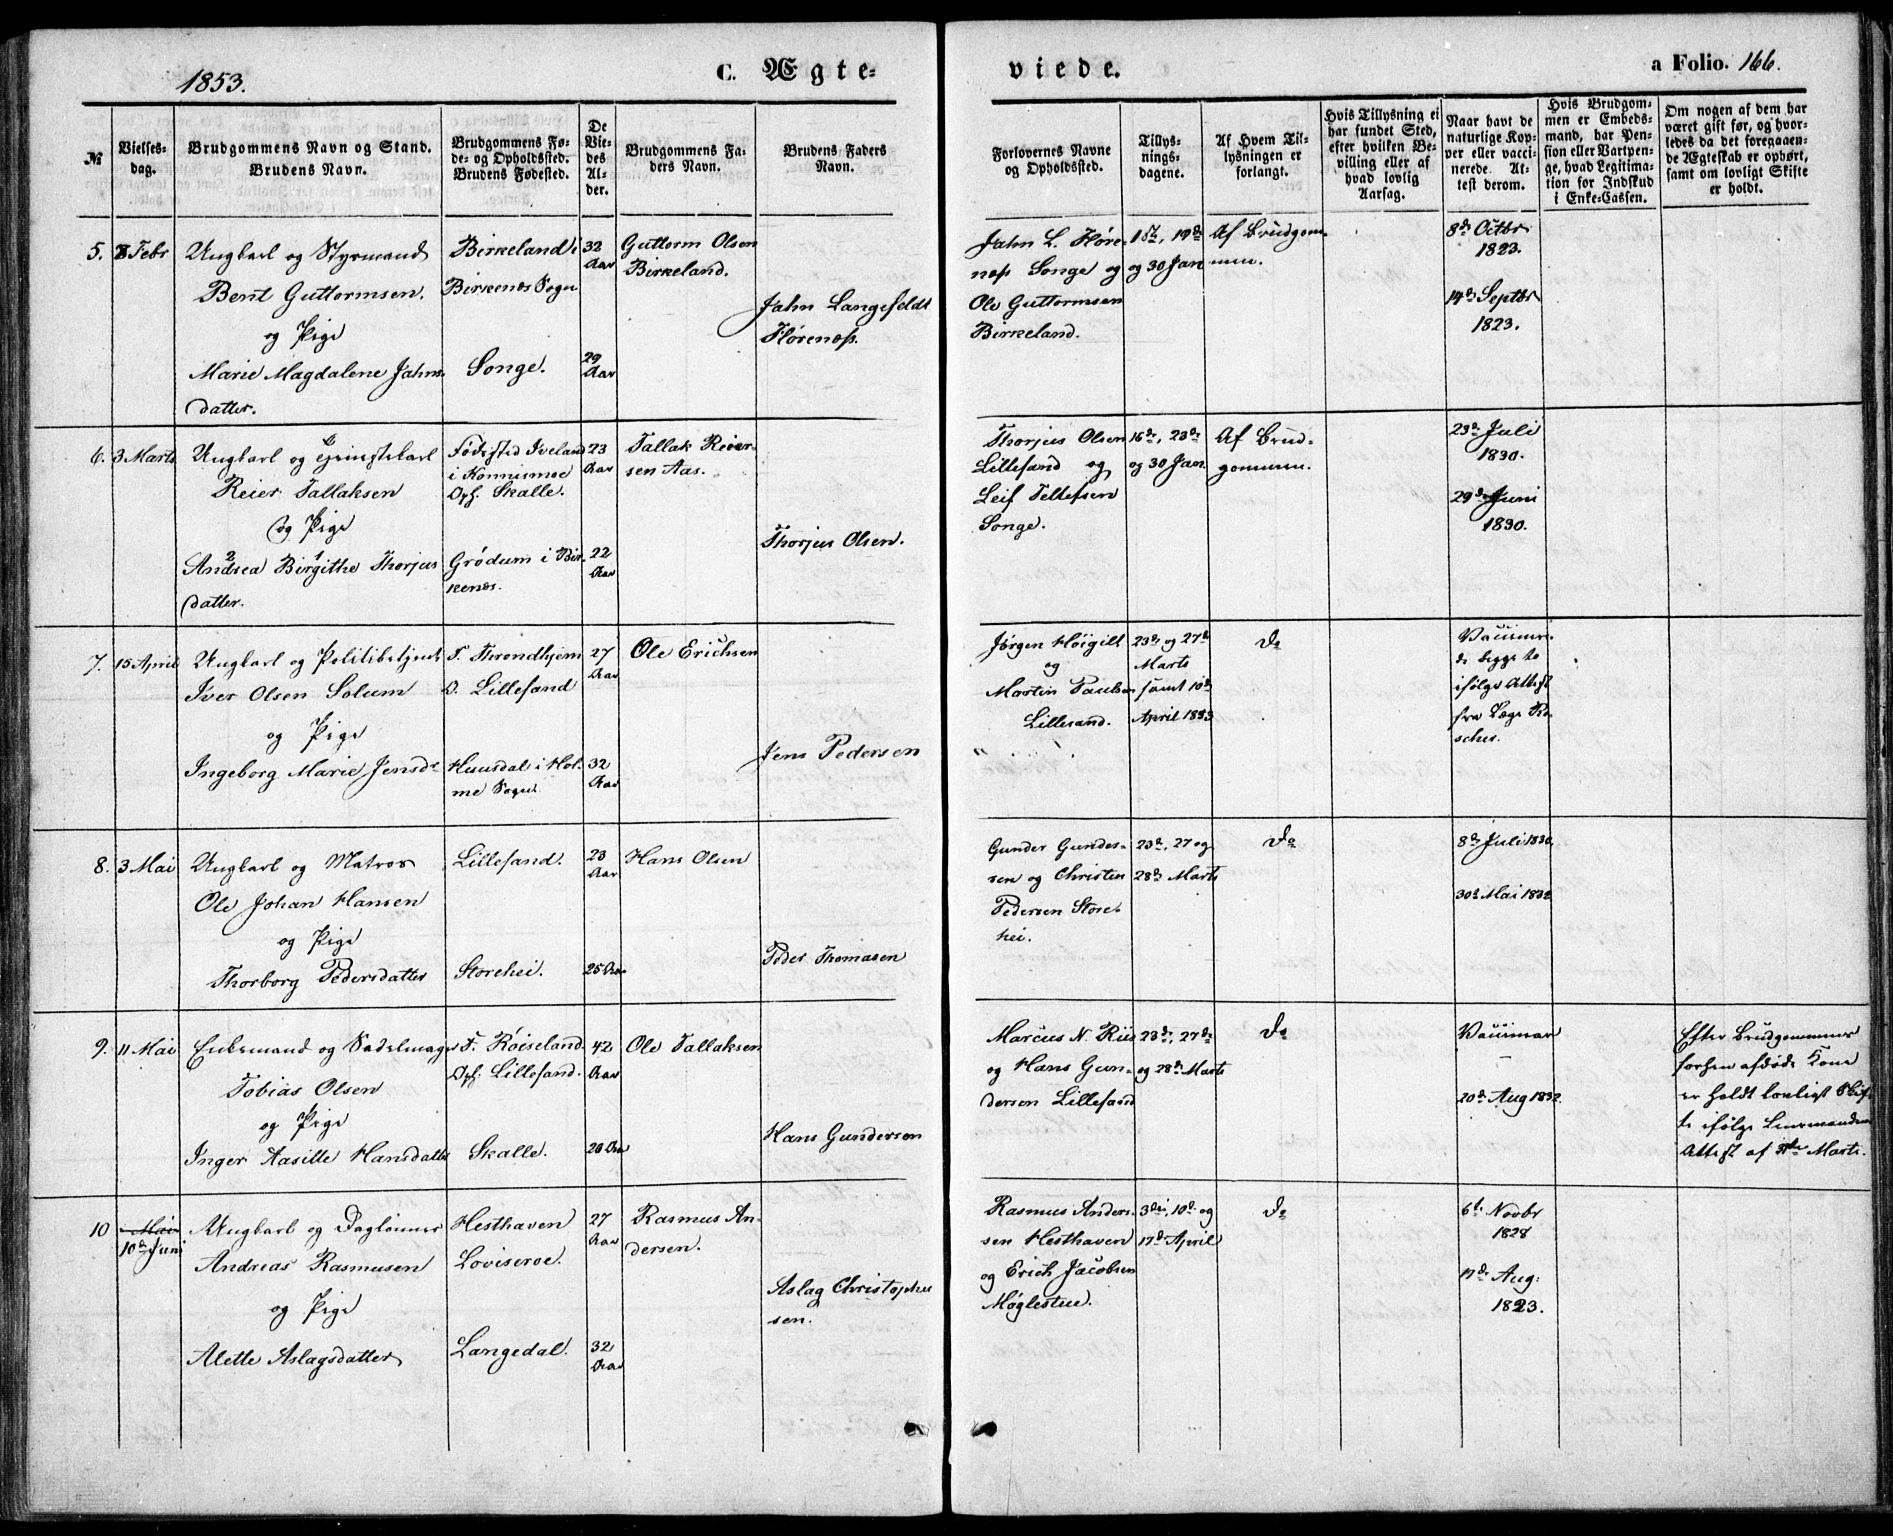 1853.
C. Ægte=
viede.
a Folio. 166.
№
Vielses-
dag.
Brudgommens Navn og Stand.
Brudens Navn.
Brudgommens Fø-
de- og Opholdssted.
Brudens Fødested.
De
Vie-
des
Al-
der.
Brudgommens Fa-
ders Navn.
Brudens Faders
Navn.
Forlovernes Navne
og Opholdssted.
Tillys-
nings-
dagene.
Af Hvem Til-
lysningen er
forlangt.
Hvis Tillysning ei
har fundet Sted,
efter hvilken Be-
villing eller af
hvad lovlig
Aarsag.
Naar havt de
naturlige Kop-
per eller vacci-
nerede. At-
test derom.
Hvis Brudgom-
men er Embeds-
mand, har Pen-
sion eller Vartpen-
ge, hvad Legitima-
tion for Indskud
i Enke-Cassen.
Om nogen af dem har
været gift før, og hvor-
ledes da det foregaaen-
de Ægteskab er ophørt,
samt om lovligt Skifte
er holdt.
5. 3 Febr
Ungkarl og Styrmand
Bent Guttormsen.
og Pige
Marie Magdalene Jahns-
datter.
Birkeland i
Birkenæs Sogn
Songe.
32
Aar
29
Aar
Guttorm Olsen
Birkeland.
Jahn Langefeldt
Hørenæs.
Jahn L. Høre-
næs Songe og
Ole Guttormsen
Birkeland.
og 30 Jan
Af Brudgom-
men.
8de Octbr
1823.
14de Septbr
1823.
6. 3 Marts
Ungkarl og
Reier Tallaksen
og Pige
Andrea Birgithe Thorjus
datter.
Fødested Iveland
i
Oph. Skalle.
Grödum i Bir-
kenæs.
23
Aar
22
Aar
Tallak Reier-
sen Aas.
Thorjus Olsen.
Thorjus Olsen
Lillesand og
Leif Tellefsen
Songe.
16de, 23de
og 30 Jan.
Af Brud-
gommen.
23de Juli
1830.
29de Juni
1830.
7. 15 April
Ungkarl og Politibetjent
Iver Olsen Solum
og Pige
Ingeborg Marie Jensdr
F. Throndhjem
O. Lillesand
Huusdal i Hol-
me Sogn
27
Aar
32
Aar
Ole Erichsen
Jens Pedersen
Jørgen Høigilt
og
Martin Paulsen
Lillesand.
23de og 27de
Marts
samt 10de
April 1853
Do
Vaccinere-
de begge to
ifølge Attest
fra Læge Ro-
scher.
8. 3 Mai
Ungkarl og Matros
Ole Johan Hansen
og Pige
Thorborg Pedersdatter
Lillesand.
Storehei.
23
Aar
25 Aar
Hans Olsen
Peder Thomasen
Gunder Gunder-
sen og Christen
Pedersen Store-
hei.
23de, 27 og
28de Marts
Do
8de Juli 1830.
30de Mai 1832
9. 11 Mai
Enkemand og Sadelmager
Tobias Olsen
og Pige
Inger Aasille Hansdatter
F. Röiseland.
Oph. Lillesand.
Skalle.
42
Aar
20 Aar
Ole Tallaksen
Hans Gundersen
Marcus N. Riis
og Hans Gun-
dersen Lillesand
23de, 27de
og 28de Marts
Do
20de Aug 1832.
Efter Brudgommens
forhen afdøde Kone
er holdt lovligt Skif-
te ifølge Lensmandens
Attest af Marts.
10 Mai
10de Juni
Ungkarl og Daglönner
Andreas Rasmusen
og Pige
Alette Aslagsdatter
Hesthaven
Loviseroe.
Langedal.
27
Aar
32
Aar
Rasmus An-
dersen.
Aslag Christopher
sen.
Rasmus Ander-
sen Hesthaven
og Erich Jacobsen
Møglestue.
3die, 10de og
17de April
Do
6te Novbr
1828
17de Aug:
1823.